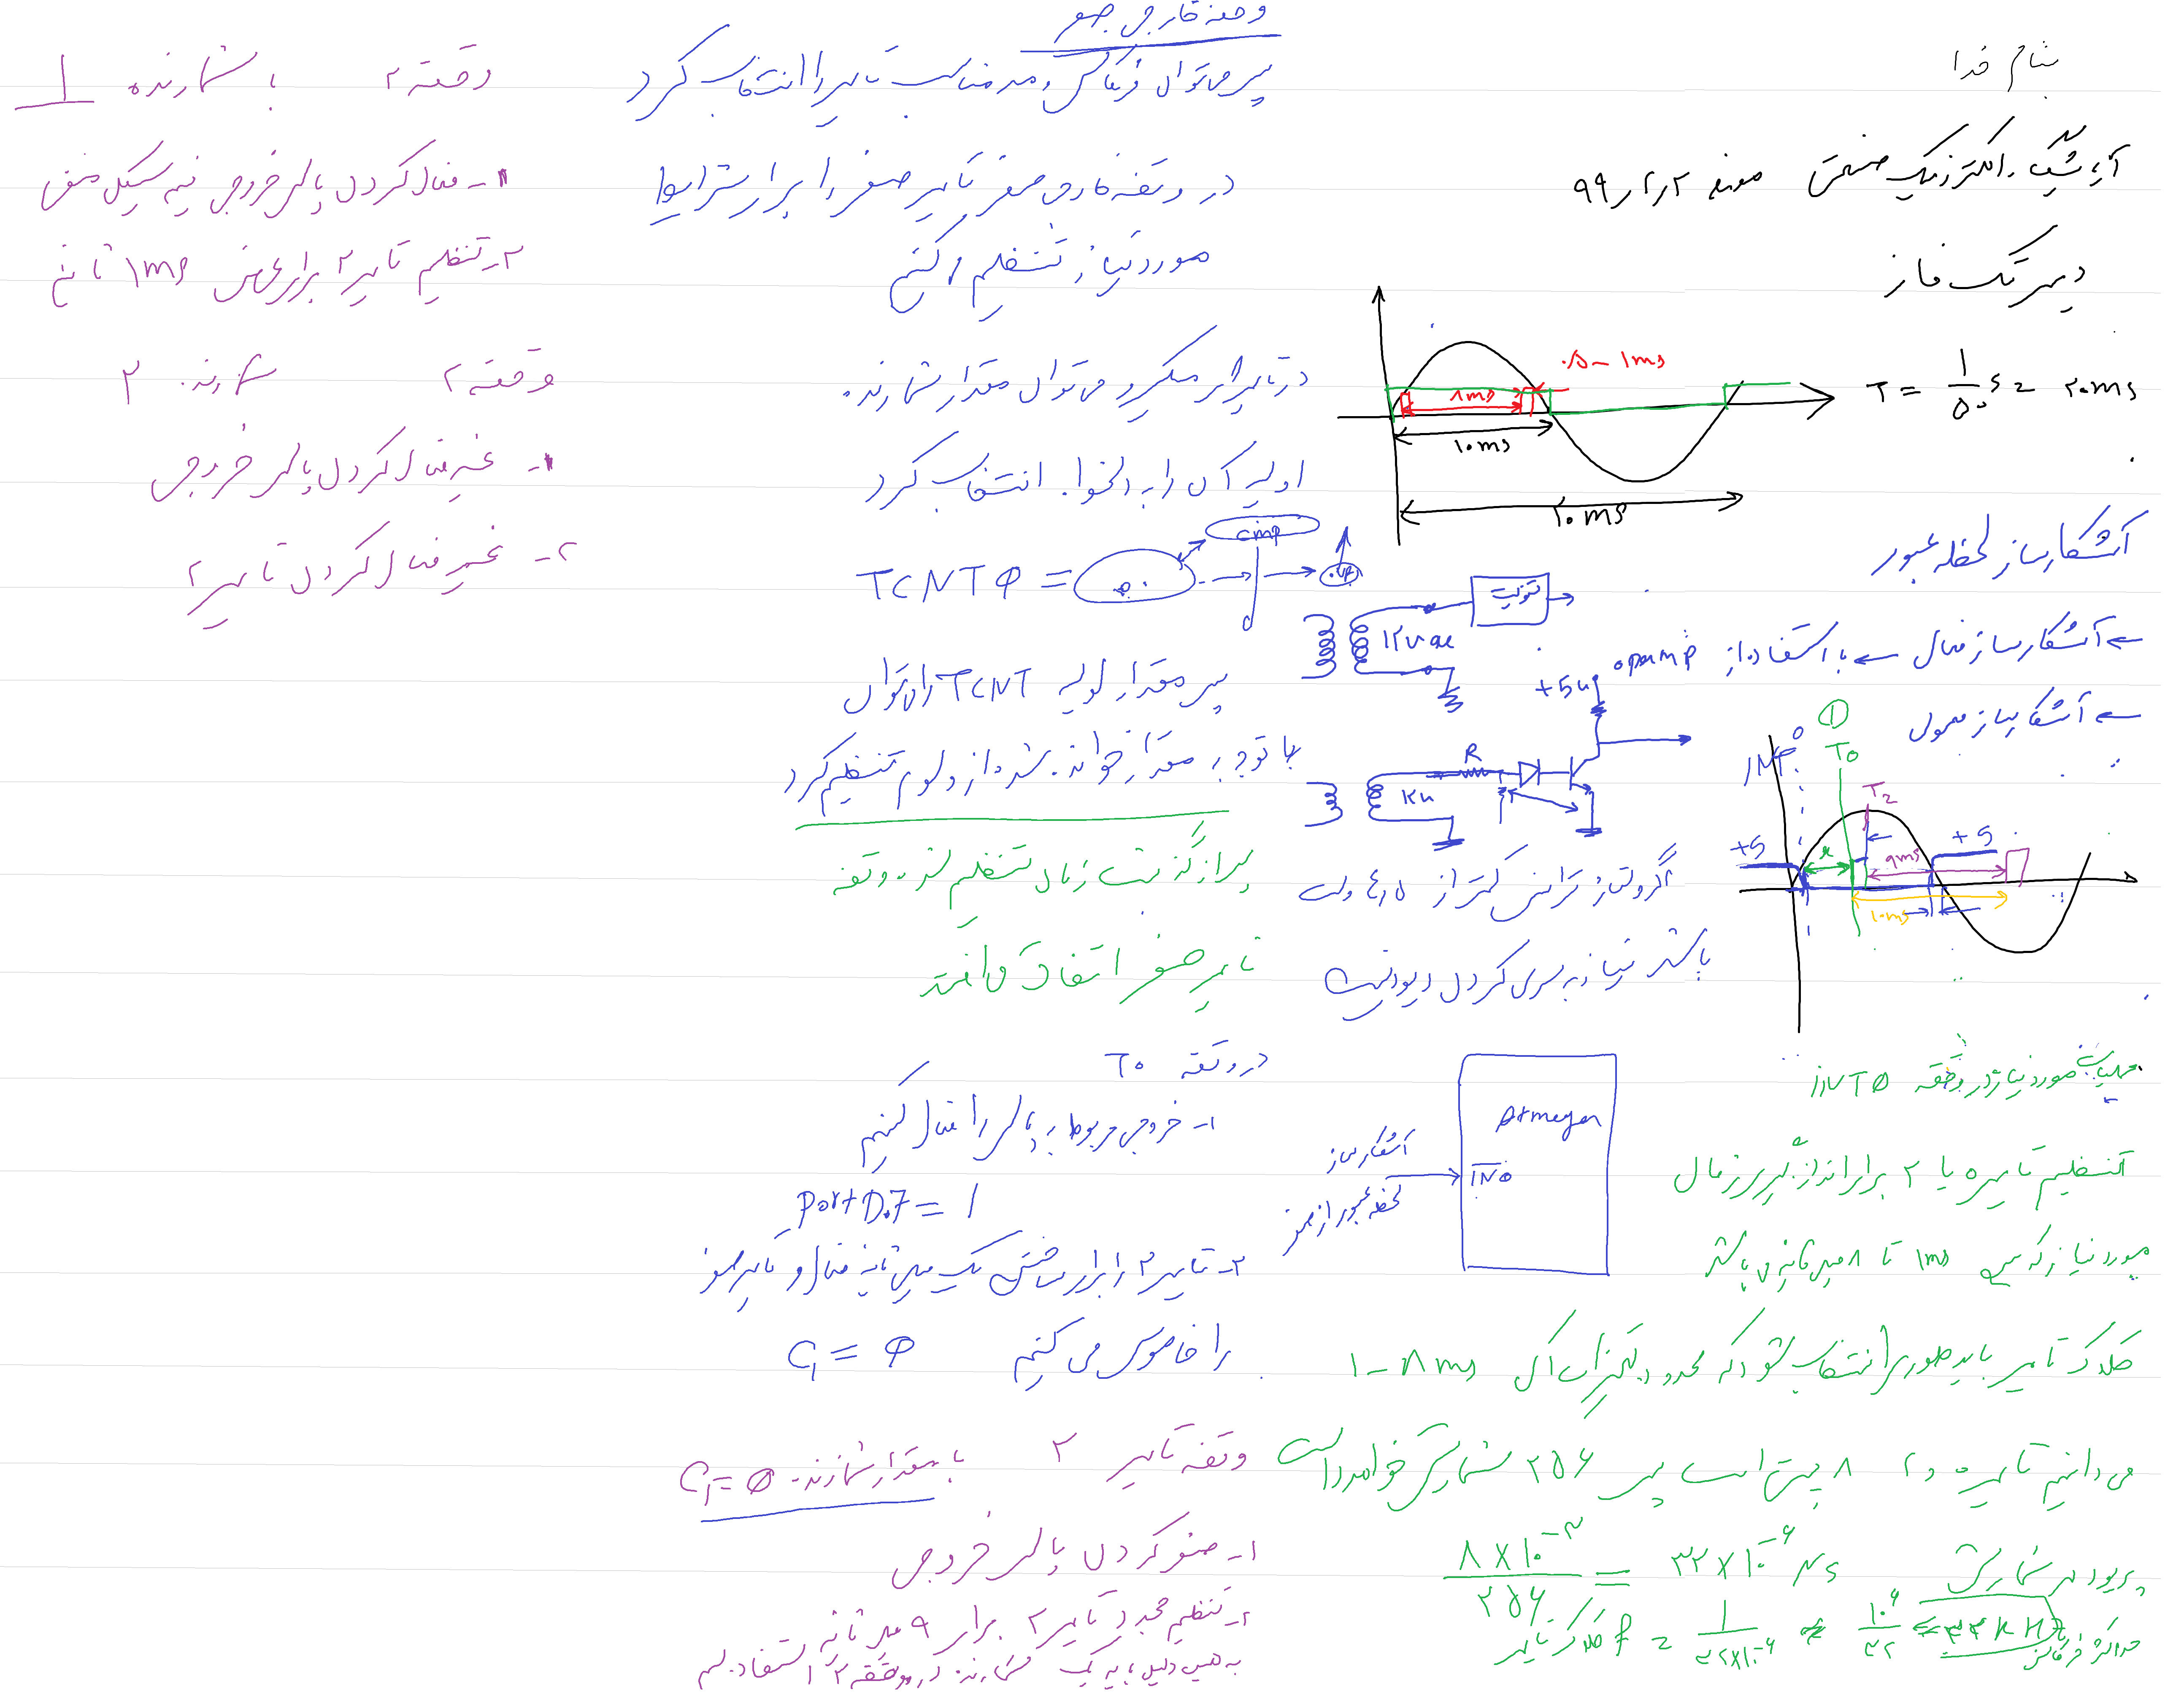 بنام خدا
آز شیک الکترونیک صنعتی مورخه ۹۹٫۲٫۲
دیمر تک فاز
T = 1/۵۰ s = ۲۰ms
۰٫۵ – ۱ms
۸ms
۱۰ms
۱۰ms
آشکارساز لحظه عبور
← آشکارساز فعال ← با استفاده از opamp
← آشکارساز معمولی
تقویت
12vac
+5v
R
INT0
①
T0
T2
+5
x
9ms
+5
10ms
اگر ولتاژ ترانس کمتر از ۴٫۵ ولت
باشد نیاز به سری کردن دیود نیست
عملیات مورد نیاز در وقفه INT0
تنظیم تایمر ۰ یا ۲ برای اندازه گیری زمان
مورد نیاز که بین 1ms تا ۸ میلی ثانیه می باشد
Atmega
INO
آشکارساز
لحظه عبور از صفر
کلاک تایمر باید طوری انتخاب شود که محدوده 1 – ۸ms
می دانیم تایمر ۰ و ۲ ۸ بیتی است پس ۲۵۶ شمارش خواهد داشت
پریود هر شمارش
۸×۱۰^-۳ / ۲۵۶ = ۳۲×۱۰^-۶ μs
حداکثر فرکانس
کلاک تایمر f = 1 / ۳۲×۱۰^-۶ ≈ ۱۰^۶ / ۳۲ = ۳۲kHz
وقفه خارجی صفر
پس می توان فرکانس و مد مناسب تایمر را انتخاب کرد
در وقفه خارجی صفر تایمر صفر را برای شرایط
مورد نیاز تنظیم می کنیم
در تایمر این میکرو می توان مقدار شمارنده
اولیه آن را به دلخواه انتخاب کرد
TCNT0 =
cmp
ovf
پس مقدار اولیه TCNT را می توان
با توجه به مقدار خوانده شده از ولوم تنظیم کرد
پس از گذشت زمان تنظیم شده وقفه
تایمر صفر اتفاق می افتد
در وقفه T0
۱- خروجی مربوط به پالس را فعال کنیم
PortD.7 = 1
۲- تایمر ۲ را برای ساختن یک میلی ثانیه فعال و تایمر صفر
را خاموش می کنیم C1 = 0
وقفه تایمر ۲ با مقدار شمارنده C1 = 0
۱- صفر کردن پالس خروجی
۲- تنظیم مجدد تایمر ۲ برای ۹ میلی ثانیه
به همین دلیل باید یک شمارنده در وقفه ۲ استفاده کنیم
وقفه ۲ با شمارنده 1
۱- فعال کردن پالس خروجی نیم سیکل منفی
۲- تنظیم تایمر ۲ برای عرض 1ms ثانیه
وقفه ۲ شمارنده ۲
۱- غیرفعال کردن پالس خروجی
۲- غیرفعال کردن تایمر ۲